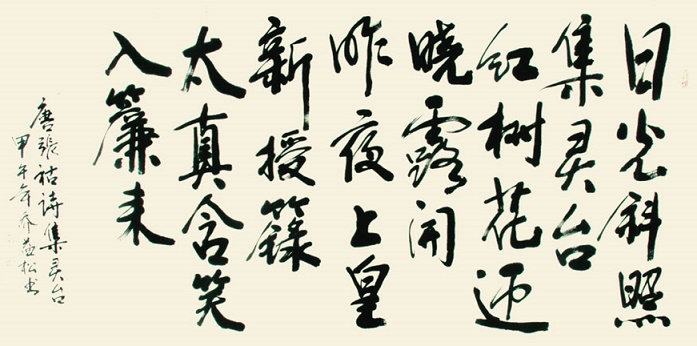 日光斜照
集灵台
红树花迎
晓露开
昨夜上皇
新授籙
太真含笑
入簾来
唐張祜诗集灵台
甲午年乔益松书